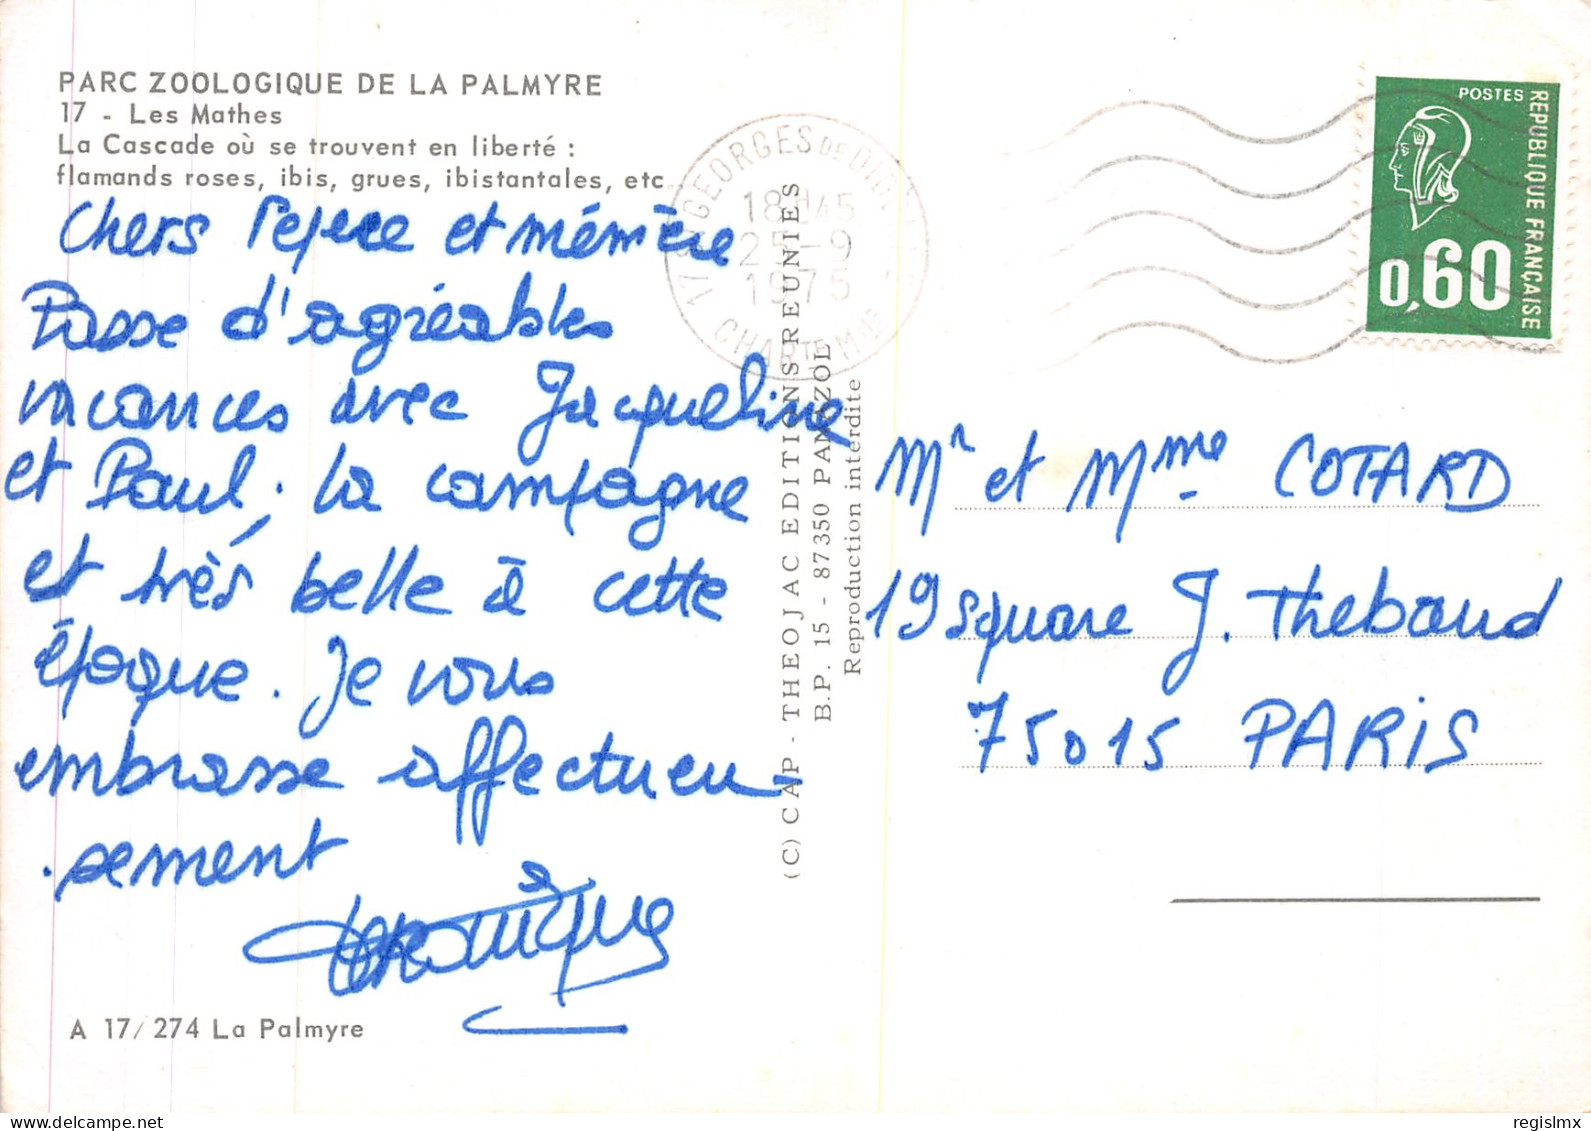 PARC ZOOLOGIQUE DE LA PALMYRE
17 - Les Mathes
La Cascade où se trouvent en liberté :
flamands roses, ibis, grues, ibistantales, etc
Chers Pépère et mémère
Passe d'agréables
vacances avec Jacqueline
et Paul ; la campagne
est très belle à cette
époque. Je vous
embrasse affectueu-
sement
Véronique
A 17/274 La Palmyre
17 ST GEORGES DE
18H45
25-9
1975
CHARTE MME
(C) CAP - THEOJAC EDITIONS REUNIES
B.P. 15 - 87350 PANAZOL
Reproduction interdite
POSTES
REPUBLIQUE FRANÇAISE
0,60
Mr et Mme COTARD
19 square J. Thebaud
75015 PARIS
regislmx